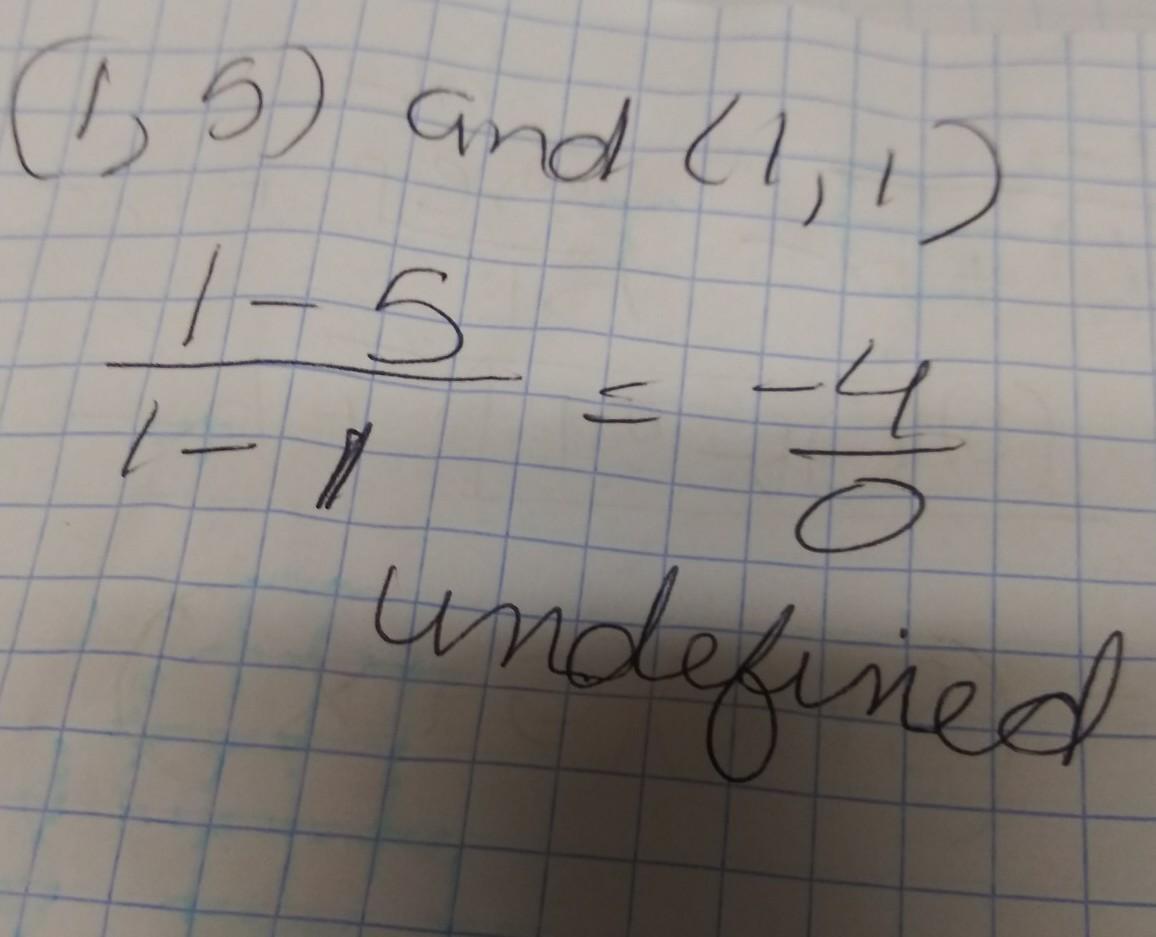 (1, 5) and (1, 1)
1 - 5
1 - 1
= -4
0
undefined